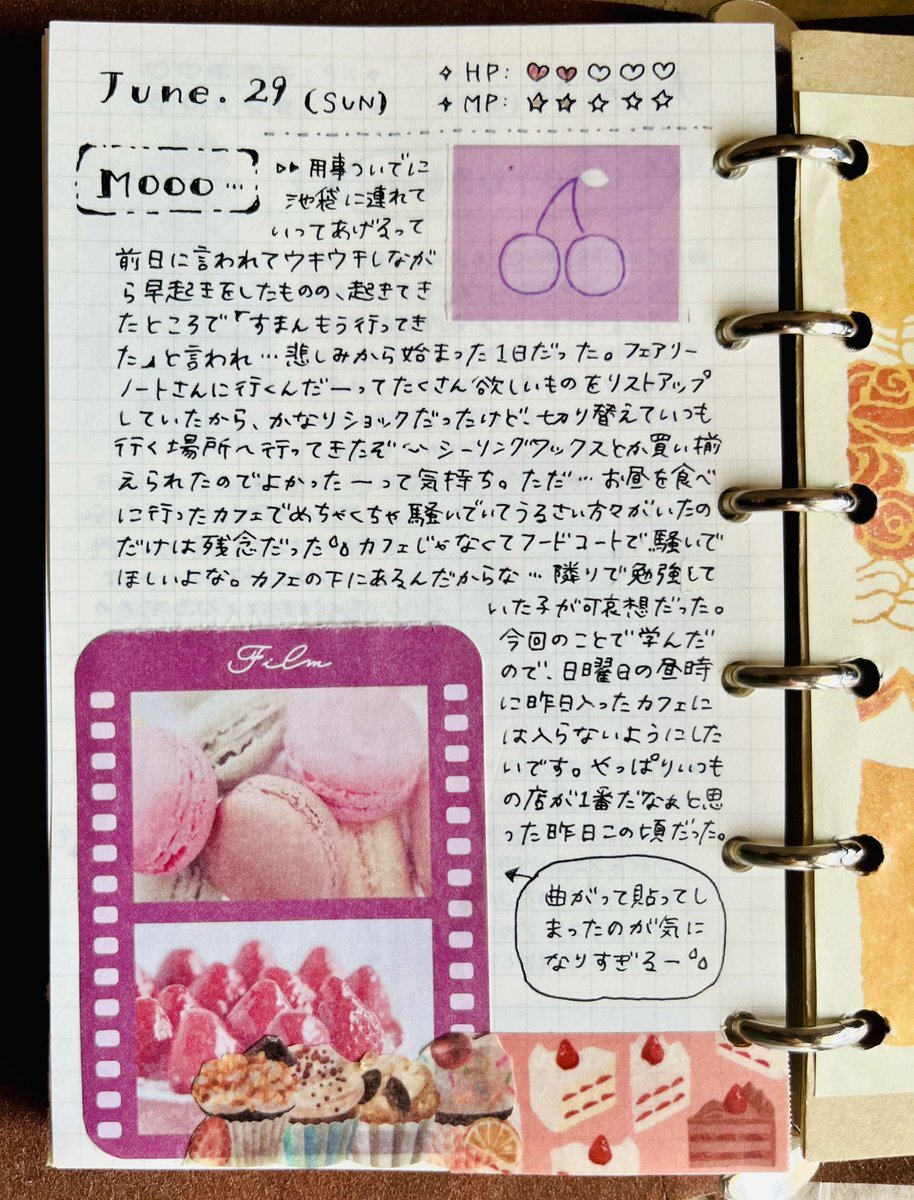 June. 29 (SUN)
HP:
MP:
Mooo…
用事ついでに
池袋に連れて
いってあげるって
前日に言われてウキウキしなが
ら早起きをしたものの、起きてき
たところで『すまんもう行ってき
た』と言われ…悲しみから始まった1日だった。フェアリー
ノートさんに行くんだーってたくさん欲しいものをリストアップ
していたから、かなりショックだったけど、切り替えていつも
行く場所へ行ってきたぞ〜 シーリングワックスとか買い揃
えられたのでよかったーって気持ち。ただ…お昼を食べ
に行ったカフェでめちゃくちゃ騒いでいてうるさい方々がいたの
だけは残念だった。カフェじゃなくてフードコートで騒いで
ほしいよな。カフェの下にあるんだからな…隣りで勉強して
いた子が可哀想だった。
今回のことで学んだ
ので、日曜日の昼時
に昨日入ったカフェに
は入らないようにした
いです。やっぱりいつも
の店が1番だなぁと思
った昨日この頃だった。
曲がって貼ってし
まったのが気に
なりすぎるー
Film